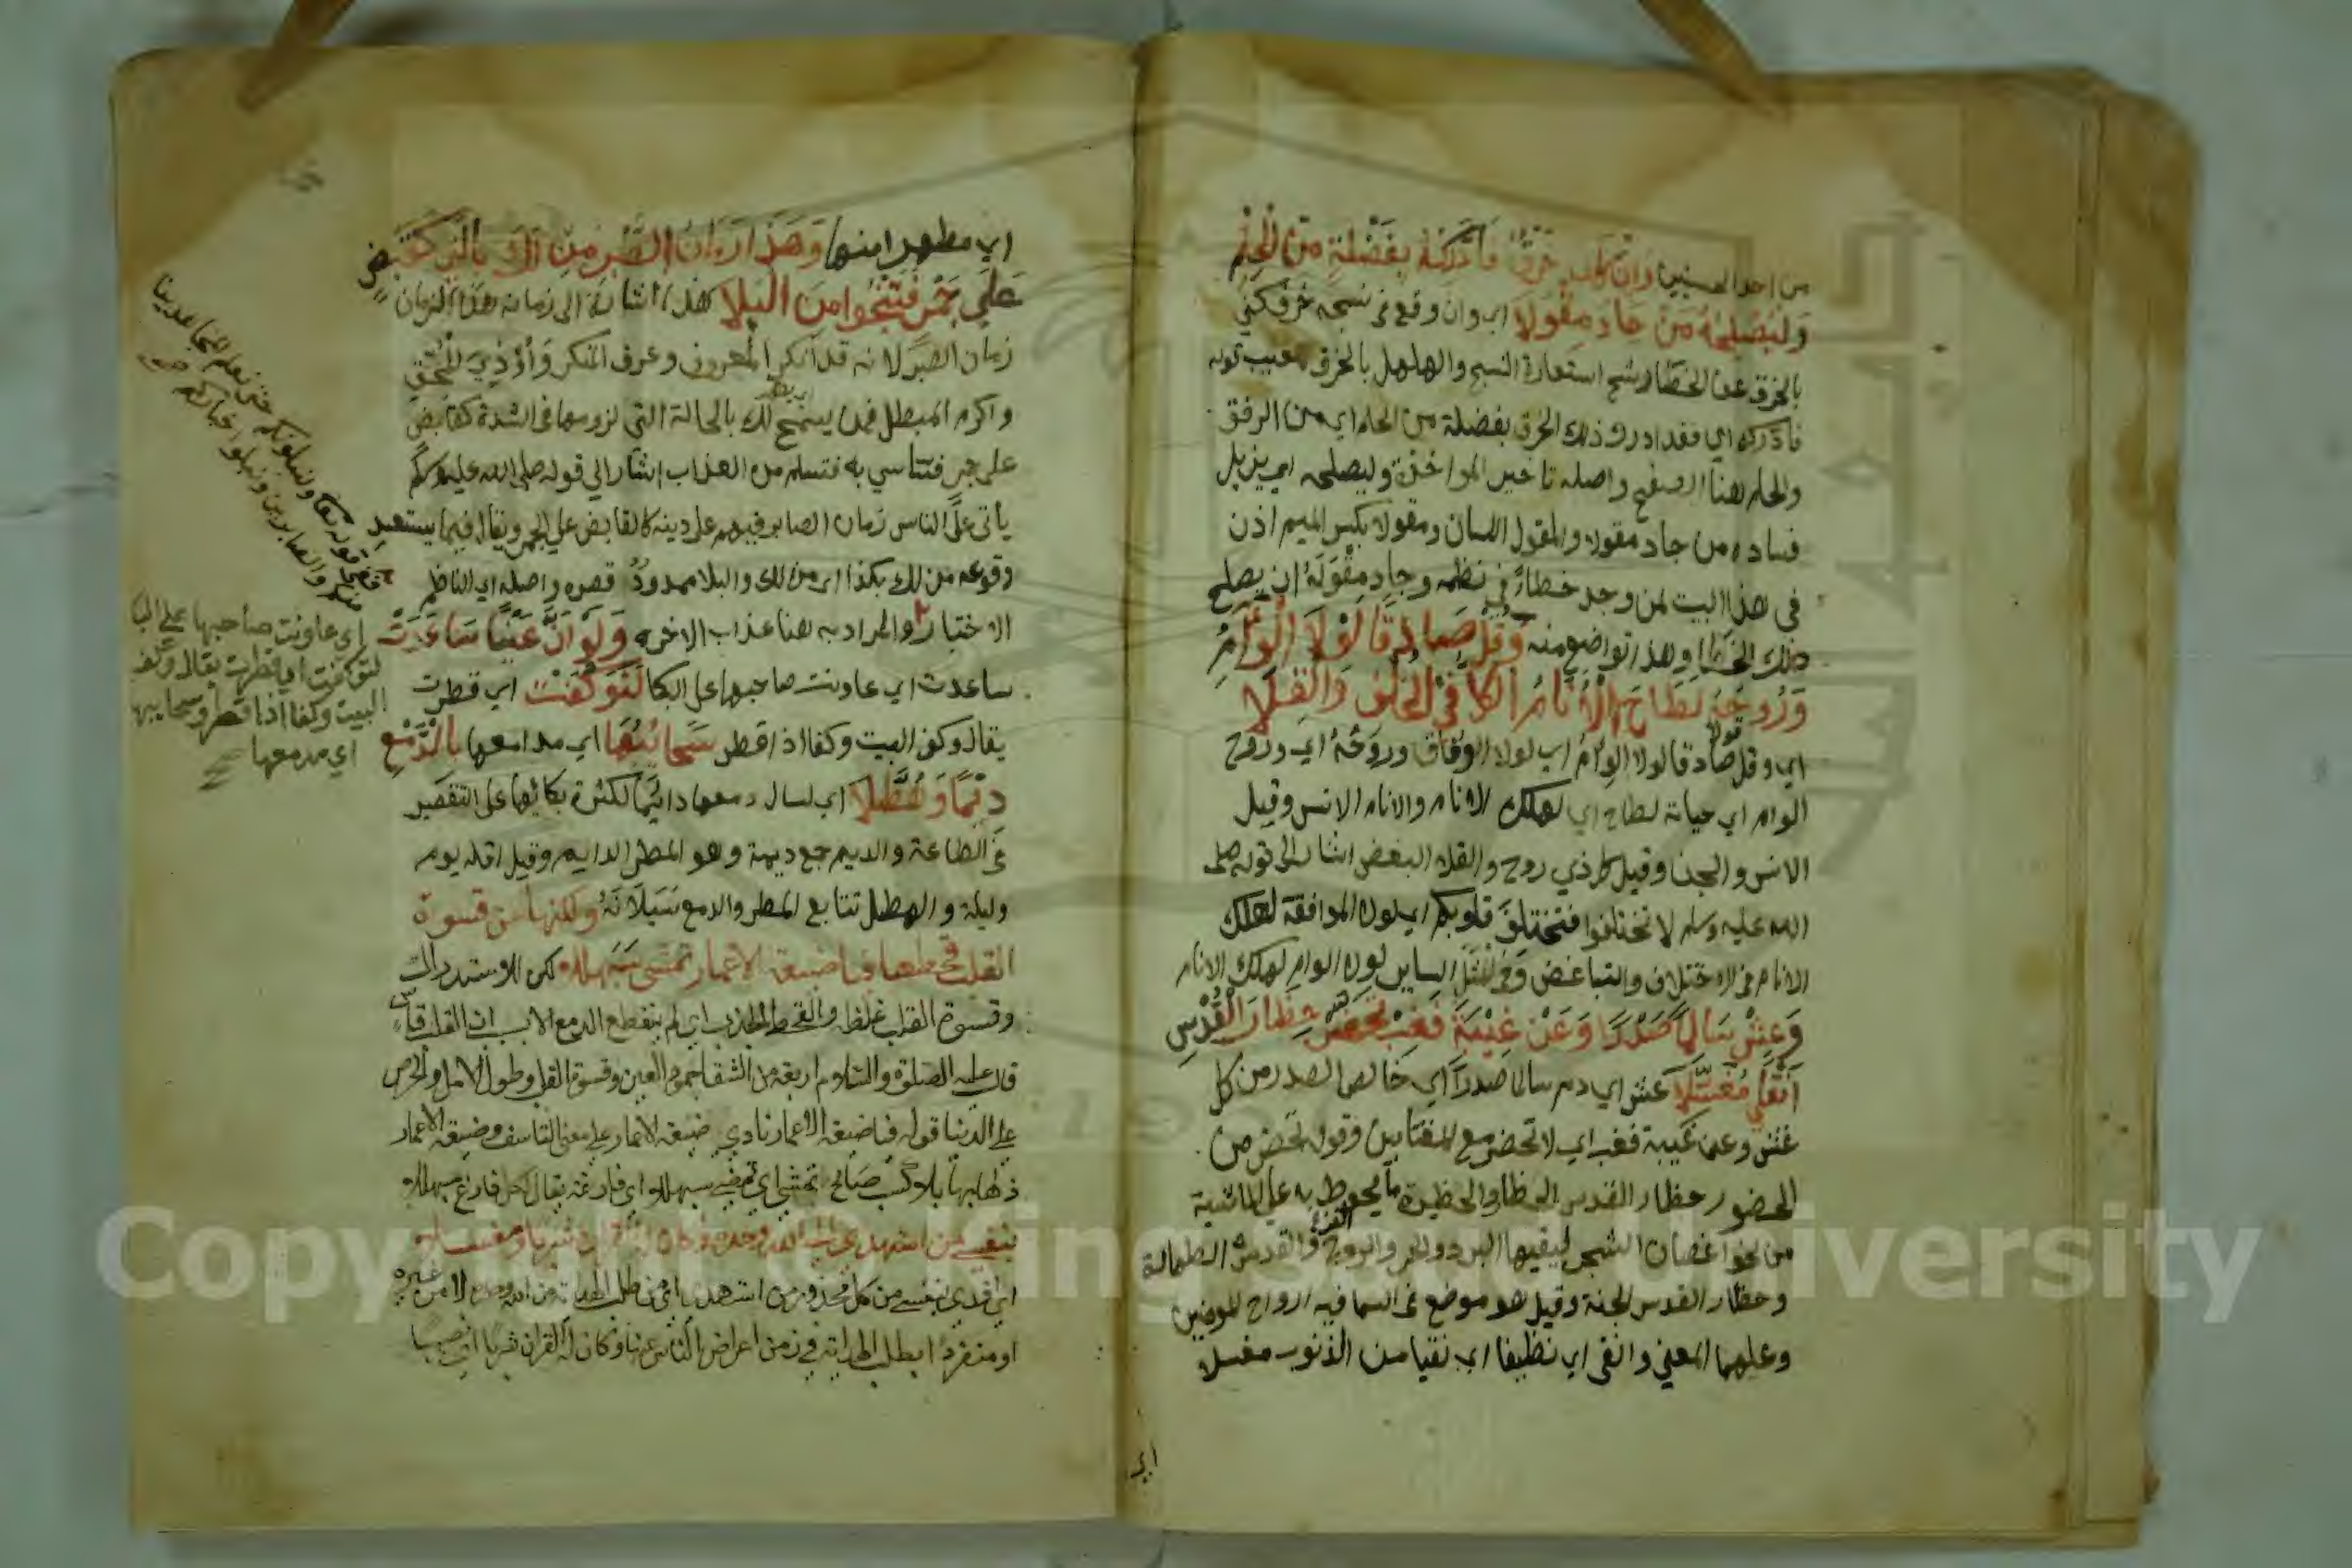 من احد الحسنيين وان كان خرق فادركه بفضلة من الحلم
وليصلحه من جاد مقولا اي وان وقع في نسجه خرق كني
بالخرق عن الخطا رشح استعارة النسج والهلهل بالخرق معيب قوله
فادركه اي فقد ادرك ذلك الخرق بفضلة من الحلم اي من الرفق
والحلم هنا الصفح واصله تاخير المواخذة وليصلحه اي يزيل
فساده من جاد مقوله والمقول اللسان ومقولا بكسر الميم اذن
في هذا البيت لمن وجد خطاء في نظمه وجاد مقوله ان يصلح
ذلك الخطا وهذا تواضع منه وقل صادقا لولا الوئام
وروحه لطاح الانام الكل في الخلف والقلا
اي وقل صادقا قول لولا الوئام اي لولا الوفاق وروحه اي وروح
الوام اي حياته لطاح اي لهلك الانام والانام الانس وقيل
الانس والجن وقيل كل ذي روح والقلا البغض اشار الى قوله صلى
الله عليه وسلم لا تختلفوا فتختلف قلوبكم اي لولا الموافقة لهلك
الانام في الاختلاف والتباغض وفي المثل الساير لولا الوام لهلك الانام
وعش سالما صدرا وعن غيبة فغب تحضر حظار القدس
انقى مغسلا عش اي دم سالما صدرا اي خالص الصدر من كل
غش وعن غيبة فغب اي لا تحضر مع المغتابين وقوله تحضر من
الحضور حظار القدس الحظار والحظيرة ما يحوط به على الماشية
من نحو اغصان الشجر ليقيها البرد والحر والريح والقدس الطهارة
وحظار القدس الجنة وقيل هو موضع في السما فيه ارواح المومنين
وعليهما المعني وانقى اي نظيفا اي نقيا من الذنوب مغسلا
اي
اي مطهرا منها وهذا زمان الصبر من لك بالتي كقبض
على جمر فتنجوا من البلا هذا اشارة الى زمانه هذا الزمان
زمان الصبر لانه قد انكر المعروف وعرف المنكر واوذي المحق
واكرم المبطل فمن يسمح لك بالحالة التي لزومها في الشدة كقابض
على جمر فتتاسي به فتسلم من العذاب اشار الى قوله صلى الله عليه وسلم
ياتي على الناس زمان الصابر فيهم على دينه كالقابض على الجمر ويقال فيما يستبعد
وقوعه من لك بكذا اي من لك والبلا ممدود قصره واصله اي الناظم
الاختبار والمراد به هنا عذاب الاخرة ولو ان عينا ساعدت
ساعدت اي عاونت صاحبها على البكا لتوكفت اي قطرت
يقال وكف البيت وكفا اذا قطر سحائبها اي مدامعها بالدمع
ديما وهطلا اي لسال دمعها دائما لكثرة بكائها على التقصير
في الطاعة والديم جمع ديمة وهو المطر الدايم وقيل اقله يوم
وليلة والهطل تتابع المطر والدمع سيلانه ولكنها عن قسوة
القلب قحطها فيا ضيعة الاعمار تمشي سبهللا لكن للاستدراك
وقسوة القلب غلظه والقحط الجدب اي لم ينقطع الدمع الا بسبب ان القلب قاس
قال عليه الصلوة والسلام اربعة من الشقا جمود العين وقسوة القلب وطول الامل والحرص
على الدنيا قوله فيا ضيعة الاعمار نادي ضيعة الاعمار على معنى التاسف وضيعة الاعمار
ذهابها بلا كسب صالح تمشي اي تمضي سبهللا اي فارغة يقال لكل فارغ سبهللا
بنفسي من استهدى الى الله وحده وكان له القران شربا ومغسلا
اي افدي بنفسي من كل محذور من استهدى اي من طلب الهداية من الله وحده لا من غيره
او منفردا بطلب الهداية في زمن اعراض الناس عنها وكان له القران شربا اي نصيبا
قوله تعالى ولنبلونكم حتى نعلم المجاهدين
منكم والصابرين ونبلوا اخباركم
اي عاونت صاحبها على البكا
لتوكفت اي قطرت يقال وكف
البيت وكفا اذا قطر وسحايبها
اي مدمعها
Copyright to King Saud University